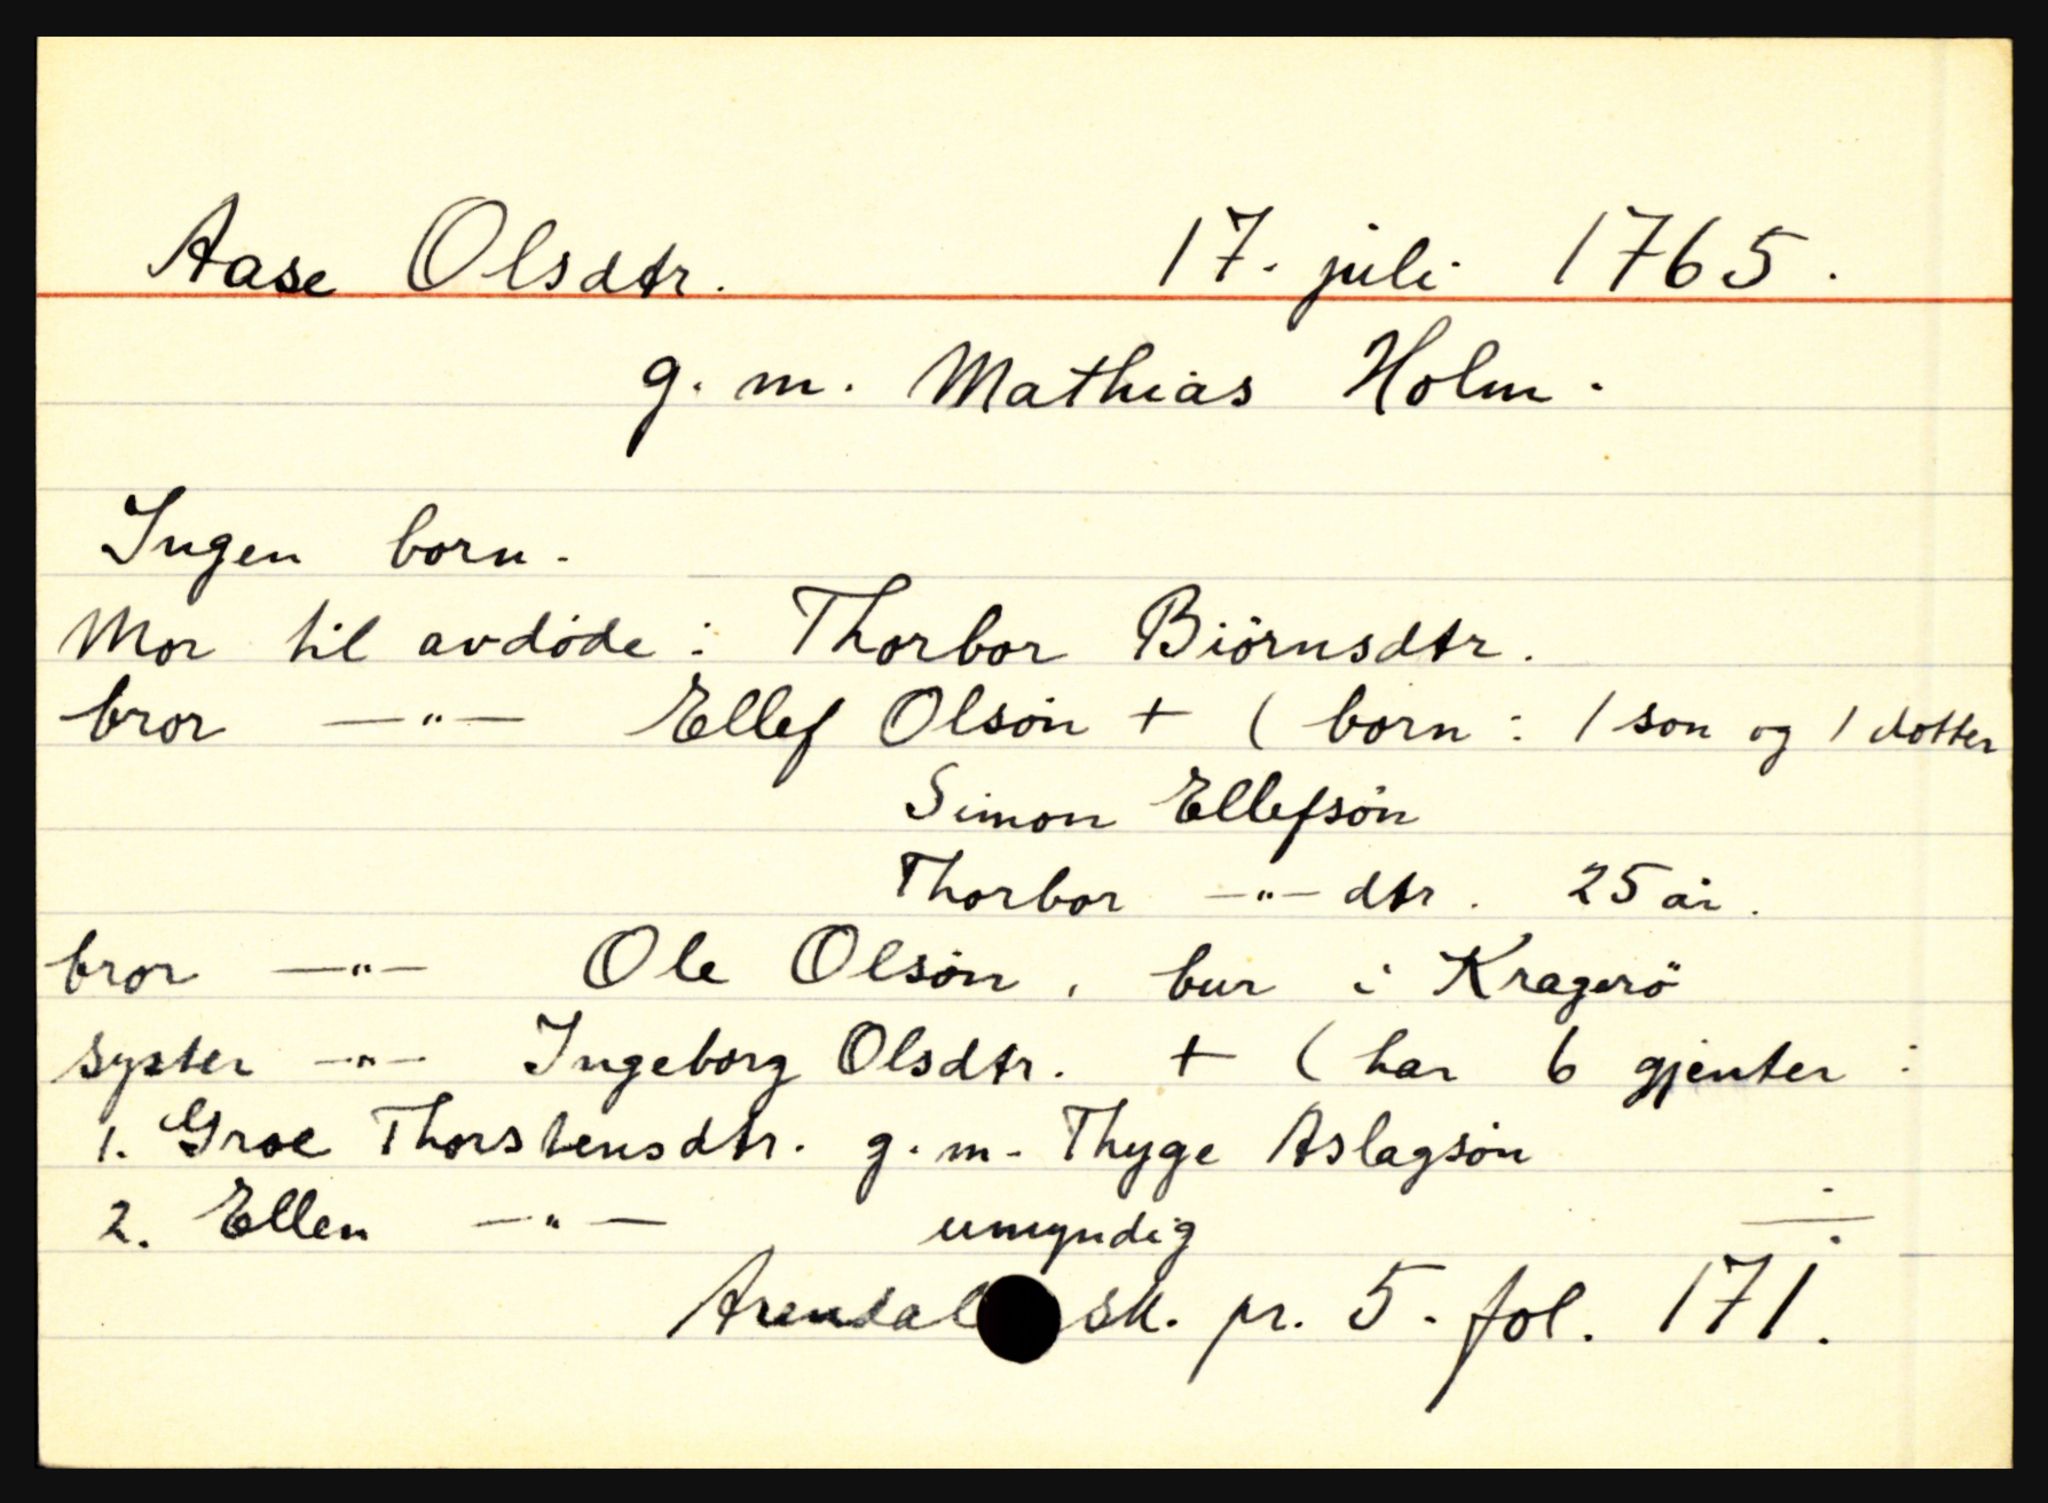 Aase Olsdtr. 17. juli 1765.
g. m. Mathias Holm.
Ingen born.
Mor til avdöde : Thorbor Biörnsdtr.
bror —"— Ellef Olsön + ( born : 1 son og 1 dotter
Simon Ellefsön
Thorbor —"— dtr. 25 år.
bror —"— Ole Olsön, bur i Kragerö
syster —"— Ingeborg Olsdtr. + ( har 6 gjenter :
1. Groe Thorstensdtr. g. m. Thyge Aslagsön
2. Ellen —"— umyndig ÷
Arendal sk. pr. 5. fol. 171.